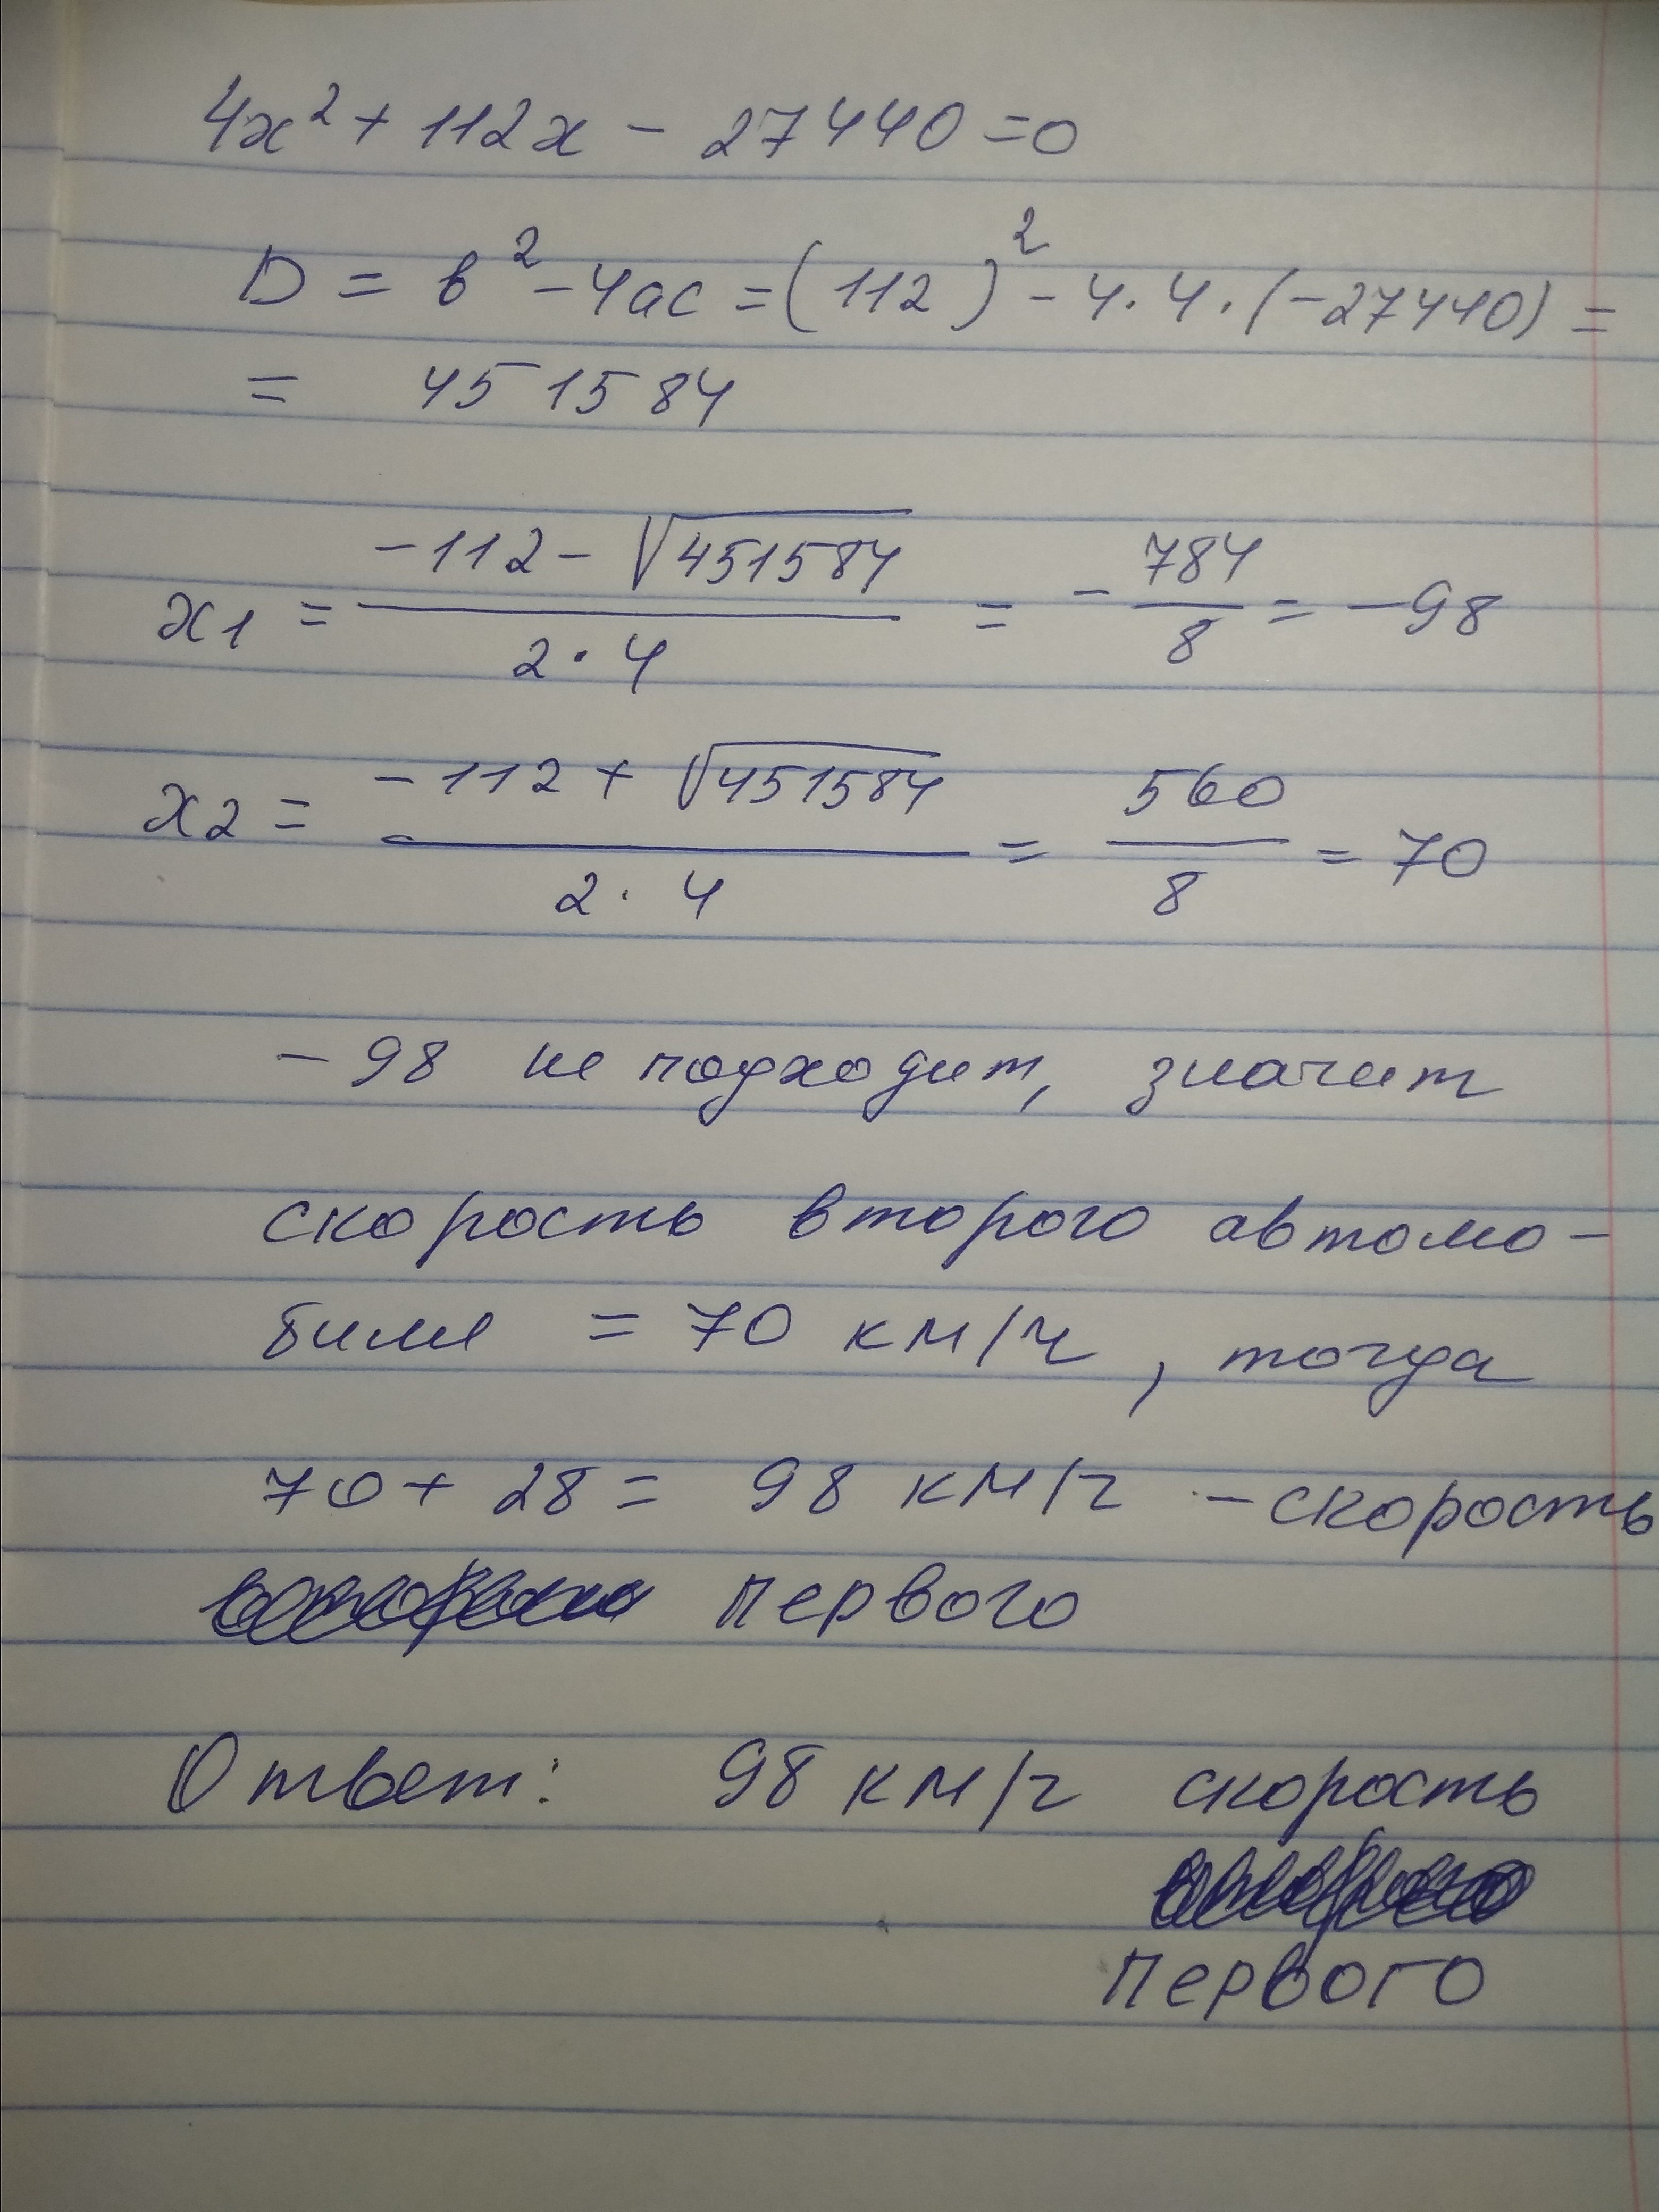 4x² + 112x - 27440 = 0
D = b² - 4ac = (112)² - 4 · 4 · (-27440) =
= 451584
x1 = (-112 - √451584) / (2 · 4) = - 784/8 = -98
x2 = (-112 + √451584) / (2 · 4) = 560/8 = 70
- 98 не подходит, значит
скорость второго автомо-
биля = 70 км/ч, тогда
70 + 28 = 98 км/ч - скорость
первого
Ответ: 98 км/ч скорость
первого